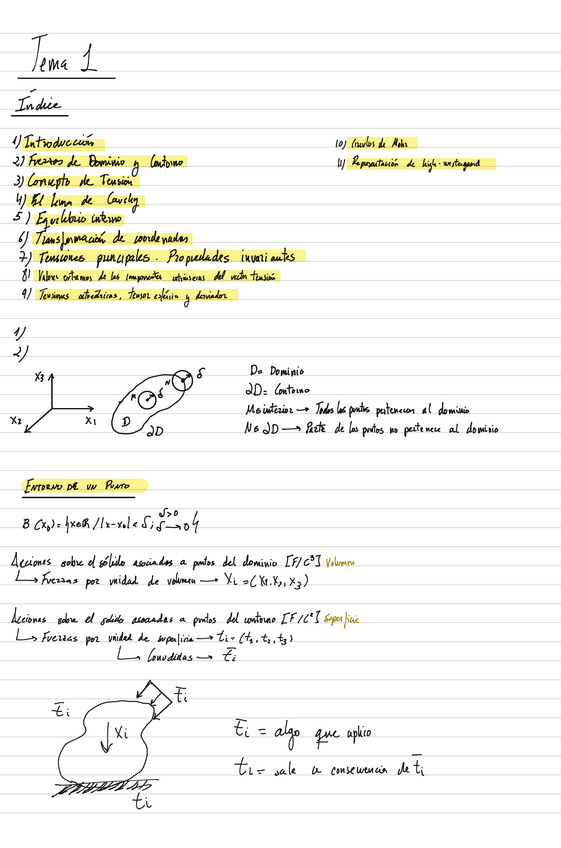 Tema 1
Índice
1) Introducción
2) Fuerzas de Dominio y Contorno
3) Concepto de Tensión
4) El Lema de Cauchy
5) Equilibrio interno
6) Transformación de coordenadas
7) Tensiones principales. Propiedades invariantes
8) Valores extremos de las componentes intrínsecas del vector tensión
9) Tensiones octaédricas, tensor esférico y desviador
10) Círculos de Mohr
11) Representación de high-westergaard
1)
2)
X3
X2
X1
M
δ
N
δ
D
∂D
D = Dominio
∂D = Contorno
M ∈ interior → Todos los puntos pertenecen al dominio
N ∈ ∂D → Parte de los puntos no pertenece al dominio
ENTORNO DE UN PUNTO
B (x0) = {x∈R / |x-x0| < δ; δ>0 δ→0}
Acciones sobre el sólido asociadas a puntos del dominio [F/L³] Volumen
↳ Fuerzas por unidad de volumen → Xi = (X1, X2, X3)
Acciones sobre el solido asociadas a puntos del contorno [F/L²] Superficie
↳ Fuerzas por unidad de superficie → ti = (t1, t2, t3)
↳ Conocidas → t̄i
t̄i
t̄i
Xi
ti
t̄i = algo que aplico
ti = sale a consecuencia de t̄i